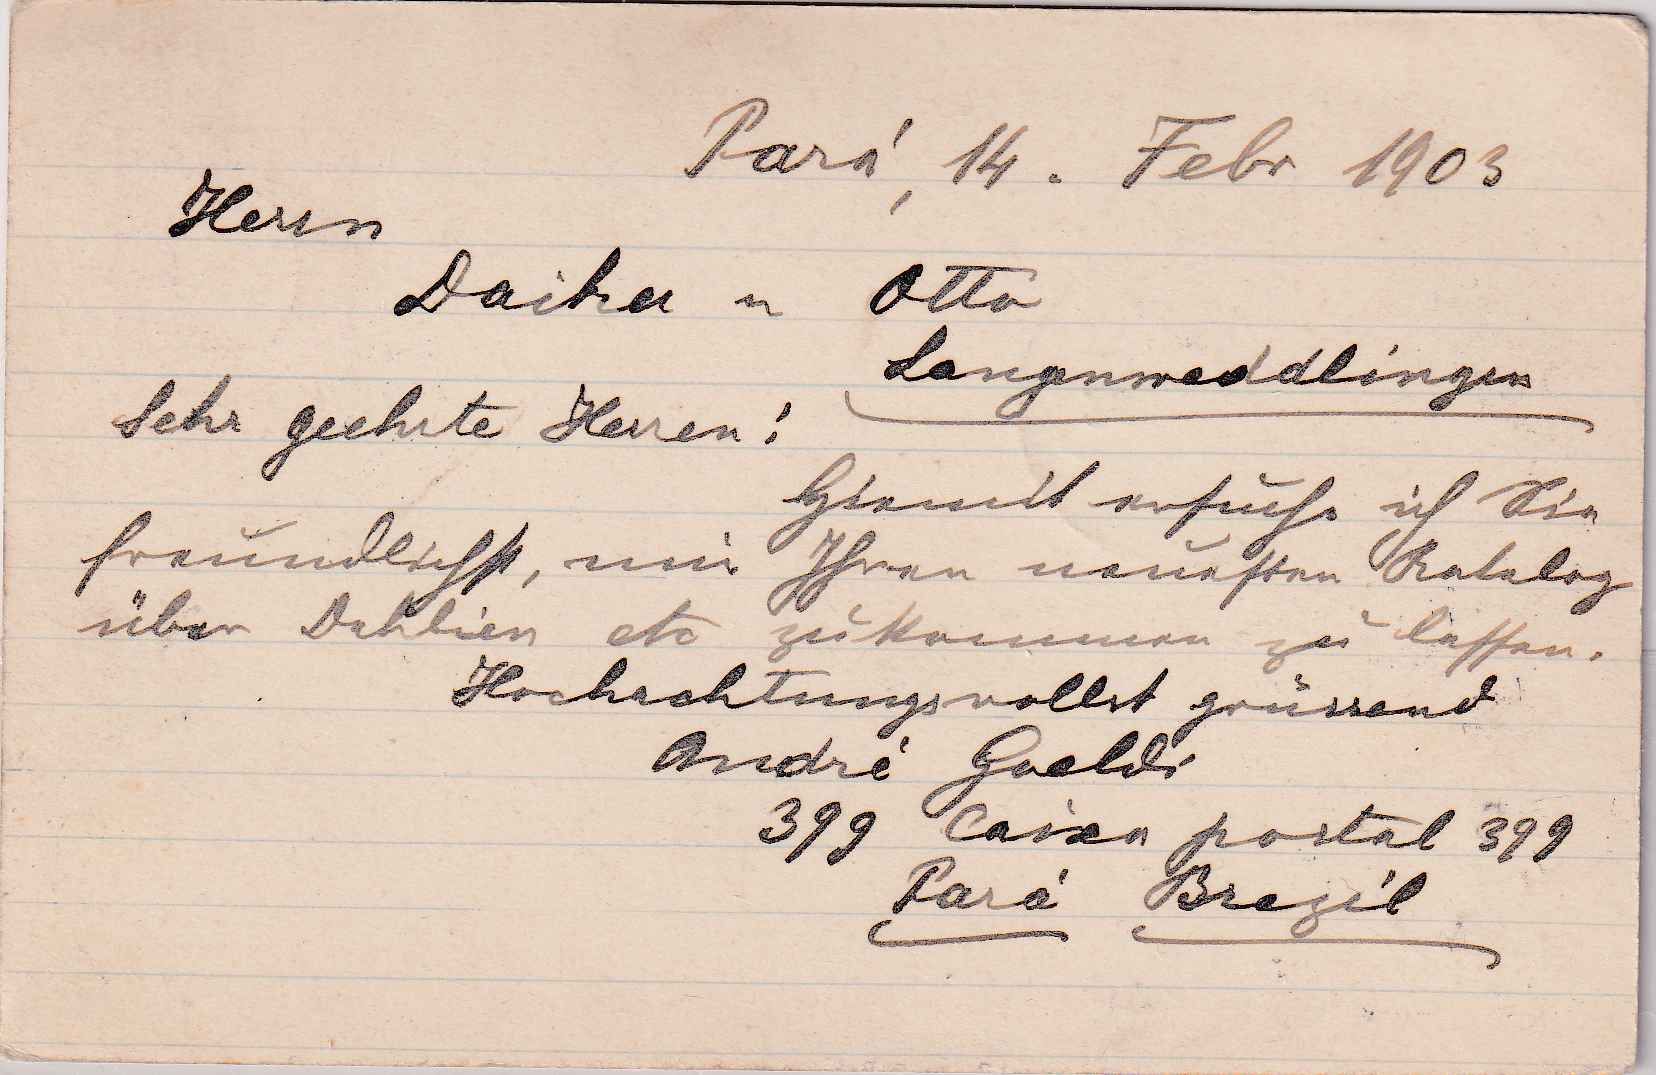 Pará, 14. Febr 1903
Herrn
Daiker u Otto
Langenweddlingen
Sehr geehrte Herren!
Hiemit ersuche ich Sie
freundlichst, mir Ihren neuesten Katalog
über Dahlien etc zukommen zu lassen.
Hochachtungsvollst grüssend
André Goeldi
399 Caixa postal 399
Pará Brazil